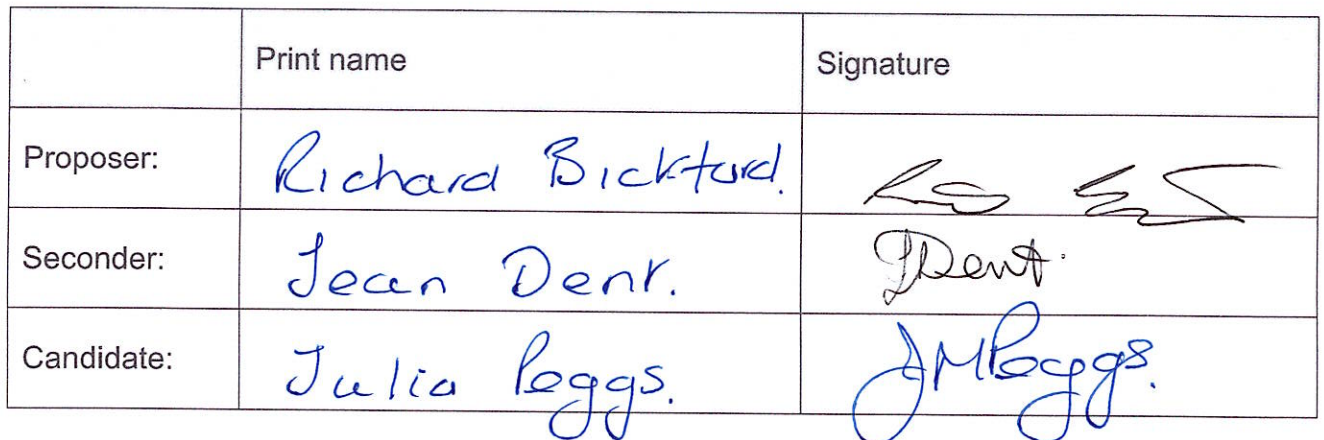 Print name Signature
Proposer: Richard Bickford.
Seconder: Jean Dent. JDent.
Candidate: Julia Peggs. JMPeggs.